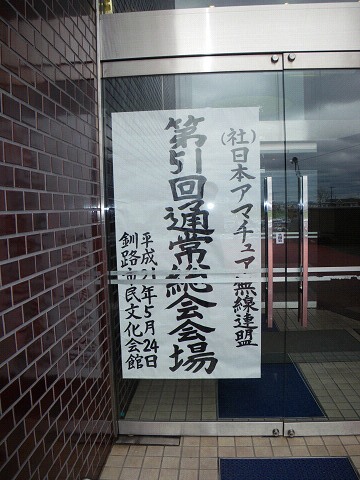 (社)日本アマチュア無線連盟
第51回通常総会会場
平成21年5月24日
釧路市民文化会館